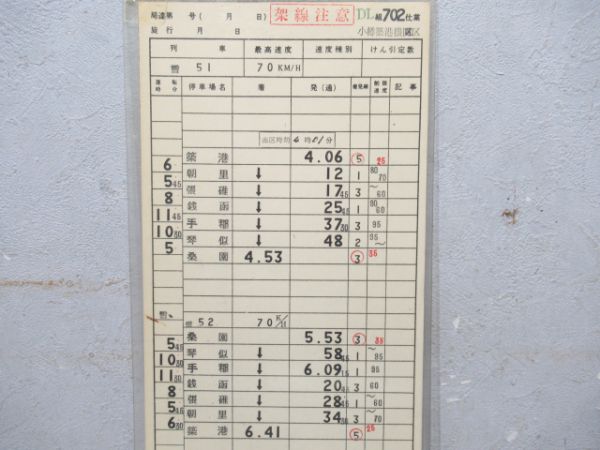 局達第 号( 月 日) 架線注意 DL組702仕業
施行 月 日 小樽築港機関区
列車 最高速度 速度種別 けん引定数
雪 51 70KM/H
運転時分 停車場名 着 発(通) 着発線 制限速度 記事
出区時刻 4時01分
築港 4.06 5 25
6 朝里 ↓ 12 1 80 70
5 45 張碓 ↓ 17 45 3 〜60
8 銭函 ↓ 25 45 1 90 60
11 45 手稲 ↓ 37 30 3 95
10 30 琴似 ↓ 48 2 95〜
5 桑園 4.53 3 35
雪 52 70 K/H
桑園 5.53 3 35
5 45 琴似 ↓ 58 45 1 〜95
10 30 手稲 ↓ 6.09 15 1 95
11 30 銭函 ↓ 20 45 3 60
8 張碓 ↓ 28 45 1 〜60
5 45 朝里 ↓ 34 30 3 〜70
6 30 築港 6.41 5 25